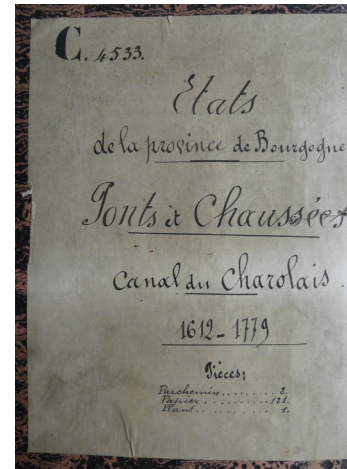 C. 4533.
Etats
de la province de Bourgogne
Ponts et Chaussées
Canal du Charolais.
1612-1779
Pièces;
Parchemin........2.
Papier..........121.
Plans...........1.